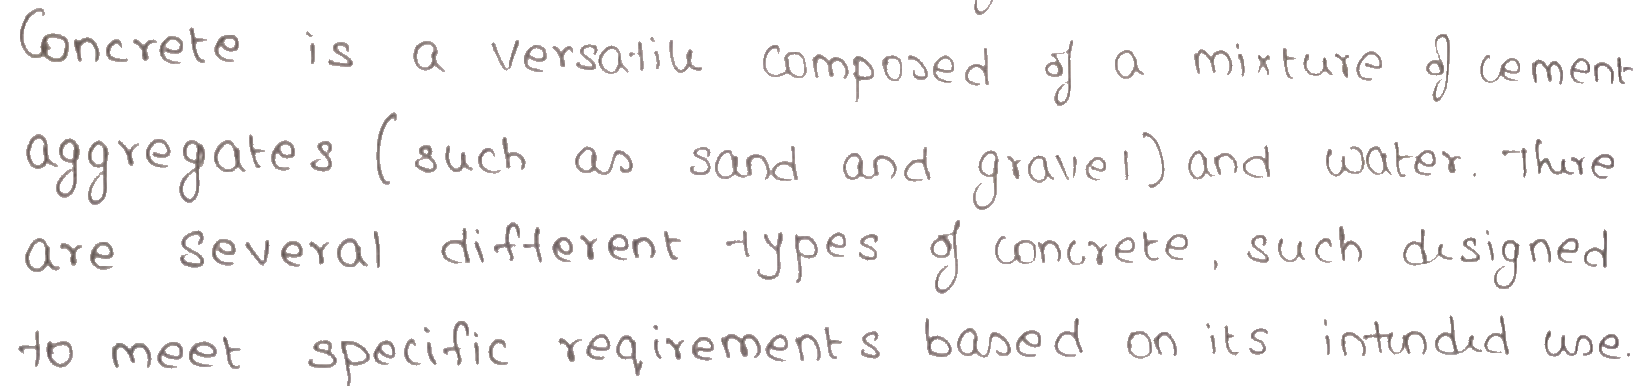 Concrete is a versatile composed of a mixture of cement
aggregates (such as sand and gravel) and water. There
are several different types of concrete, such designed
to meet specific reqirements based on its intended use.